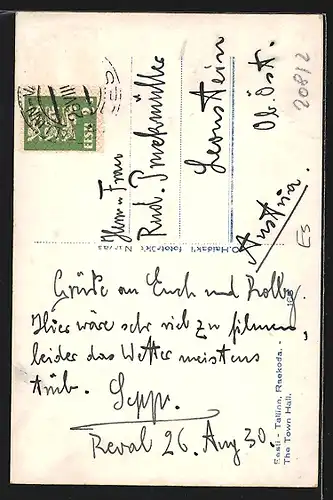 Grüße an Euch und Kolby.
Hier wäre sehr viel zu filmen,
leider das Wetter meistens
trüb. Sepp.
Reval 26. Aug 30.
Herrn u. Frau
Rud.
Leonstein
Ob. Öst.
Austria.
EESTI
208/2
ES
Eesti - Tallinn, Raekoda. -
The Town Hall.